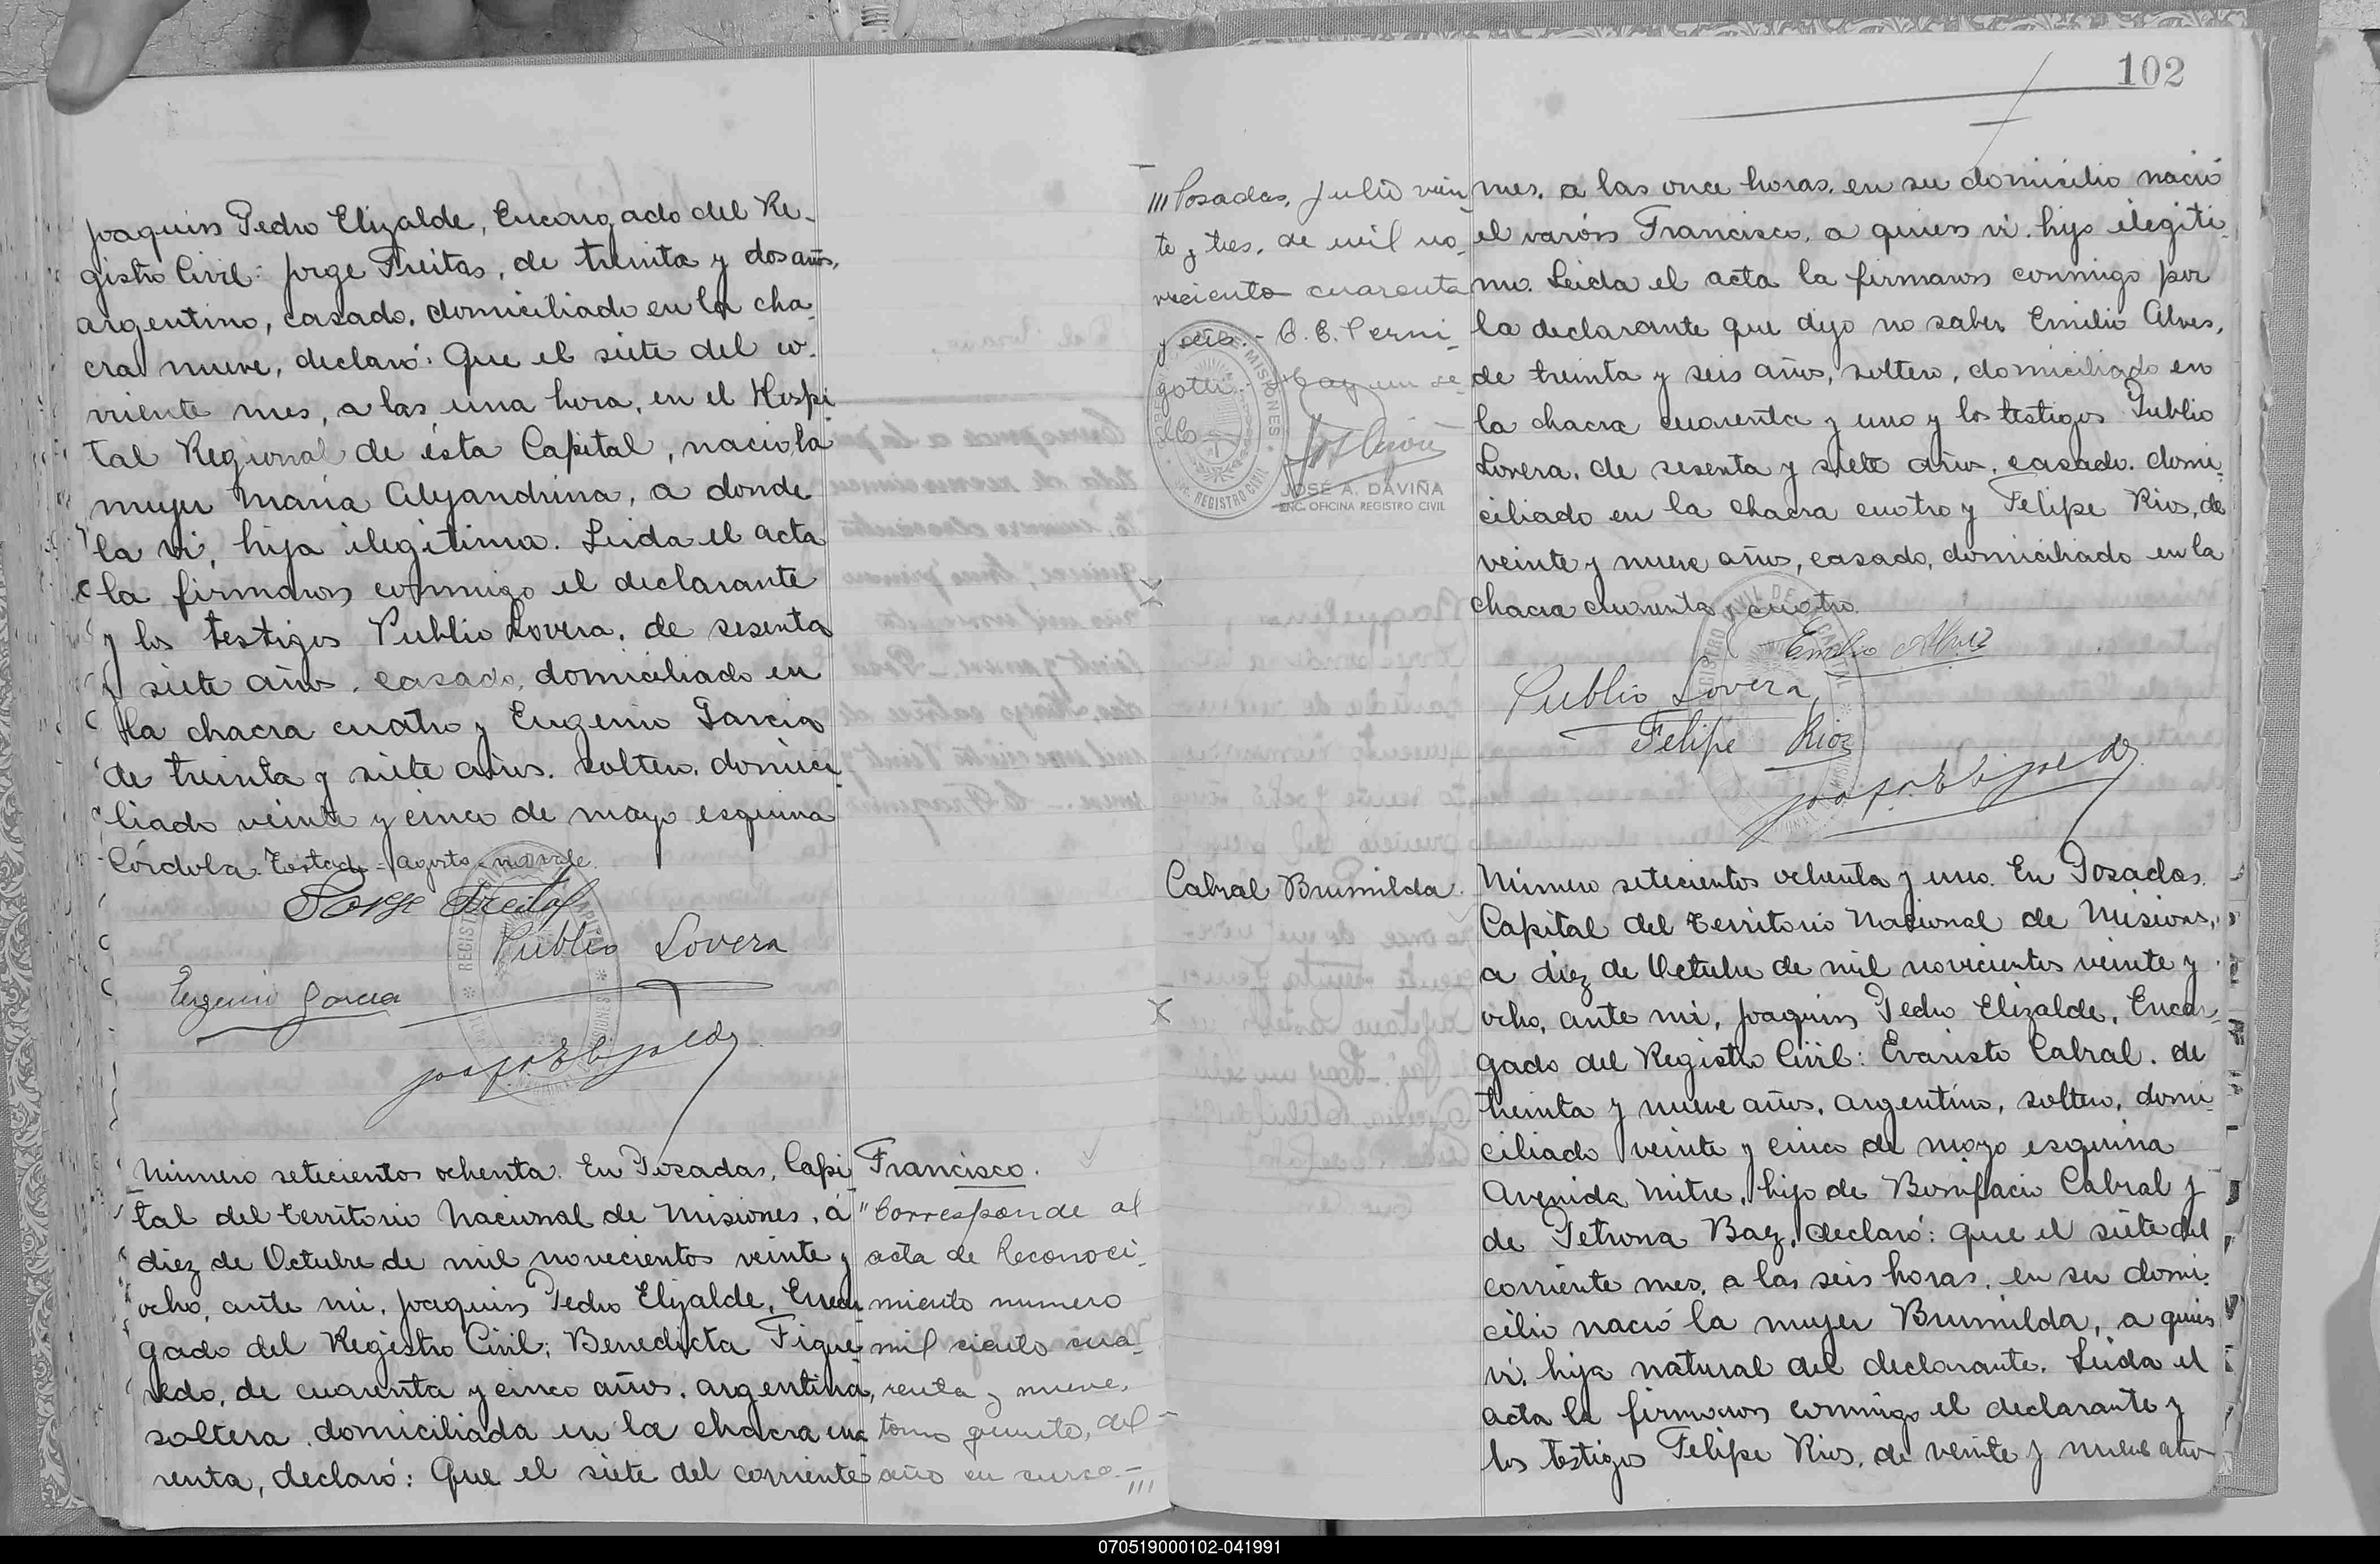 Joaquin Pedro Elizalde, Encargado del Re-
gistro Civil: Jorge Freitas, de treinta y dos años,
argentino, casado, domiciliado en la cha-
cra nueve, declaró: Que el siete del co-
rriente mes, a las una hora, en el Hospi-
tal Regional de ésta Capital, nació la
mujer María Alejandrina, a donde
la vi, hija ilegitima. Leida el acta
la firmaron conmigo el declarante
y los testigos Publio Lovera, de sesenta
y siete años, casado, domiciliado en
la chacra cuatro y Eugenio Garcia
de treinta y siete años. soltero. domici-
liado veinte y cinco de mayo esquina
Córdoba. Testado = agosto =
Jorge Freitas
Publio Lovera
Eugenio Garcia
Número setecientos ochenta. En Posadas, Capi-
tal del territorio Nacional de Misiones, á
diez de Octubre de mil novecientos veinte y
ocho, ante mi, Joaquin Pedro Elizalde, Encar-
gado del Registro Civil; Benedicta Figue-
redo, de cuarenta y cinco años, argentina,
soltera, domiciliada en la chacra cua-
renta, declaró: Que el siete del corriente
Francisco.
"Corresponde al
acta de Reconoci-
miento numero
mil ciento cua-
renta y nueve,
tomo quinto, del
año en curso.-
///
102
/// Posadas, Julio vein-
te y tres, de mil no-
veciento cuarenta
y seis.- C. E. Perni-
gotti.- Hay un se-
llo
MISIONES
REGISTRO CIVIL
JOSÉ A. DAVIÑA
ENC. OFICINA REGISTRO CIVIL
mes, a las once horas, en su domicilio nació
el varón Francisco, a quien vi, hijo ilegiti-
mo. Leida el acta la firmaron conmigo por
la declarante que dijo no saber Emilio Alves,
de treinta y seis años, soltero, domiciliado en
la chacra cuarenta y uno y los testigos Publio
Lovera, de sesenta y siete años, casado, domi-
ciliado en la chacra cuatro y Felipe Rios, de
veinte y nueve años, casado, domiciliado en la
chacra cuarenta y cuatro.
Emilio Alvez
Publio Lovera
Felipe Rios
Cabral Brumilda.
Número setecientos ochenta y uno. En Posadas.
Capital del territorio Nacional de Misiones,
a diez de Octubre de mil novecientos veinte y
ocho, ante mi, Joaquin Pedro Elizalde, Encar-
gado del Registro Civil: Evaristo Cabral, de
treinta y nueve años, argentino, soltero, domi-
ciliado veinte y cinco de mayo esquina
Avenida Mitre, hijo de Bonifacio Cabral y
de Petrona Baez, declaró: Que el siete del
corriente mes, a las seis horas, en su domi-
cilio nació la mujer Brumilda, a quien
vi, hija natural del declarante. Leida el
acta la firmaron conmigo el declarante y
los testigos Felipe Rios, de veinte y nueve años
070519000102-041991